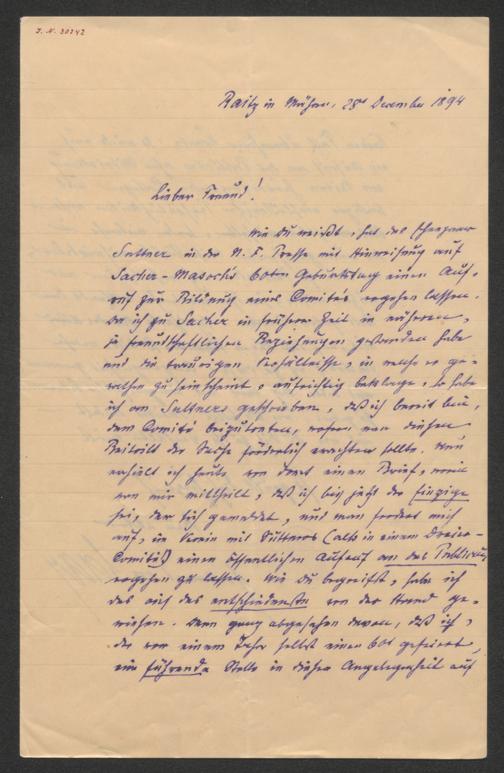 I. N. 30242
Raitz in Mähren, 28ten December 1894
Lieber Freund!
Wie Du weißt, hat das Ehepaar
Suttner in der N. F. Presse mit Hinweisung auf
Sacher-Masochs 60ten Geburtstag einen Auf-
ruf zur Bildung eines Comités ergehen lassen.
Da ich zu Sacher in früherer Zeit in näheren,
ja freundschaftlichen Beziehungen gestanden habe
und die traurigen Verhältnisse, in welche er ge-
rathen zu sein scheint, aufrichtig beklage, so habe
ich an Suttners geschrieben, daß ich bereit bin,
dem Comité beizutreten, wofern man diesen
Beitritt der Sache förderlich erachten sollte. Nun
erhielt ich heute von dort einen Brief, worin
man mir mittheilt, daß ich bis jetzt der Einzige
sei, der sich gemeldet, und man fordert mich
auf, in Verein mit Suttners (also in einem Dreier-
Comité) einen öffentlichen Aufruf an das Publicum
ergehen zu lassen. Wie Du begreifst, habe ich
das auf das entschiedenste von der Hand ge-
wiesen. Denn ganz abgesehen davon, daß ich,
der vor einem Jahr selbst einen 60t gefeiert,
eine führende Stelle in dieser Angelegenheit auf